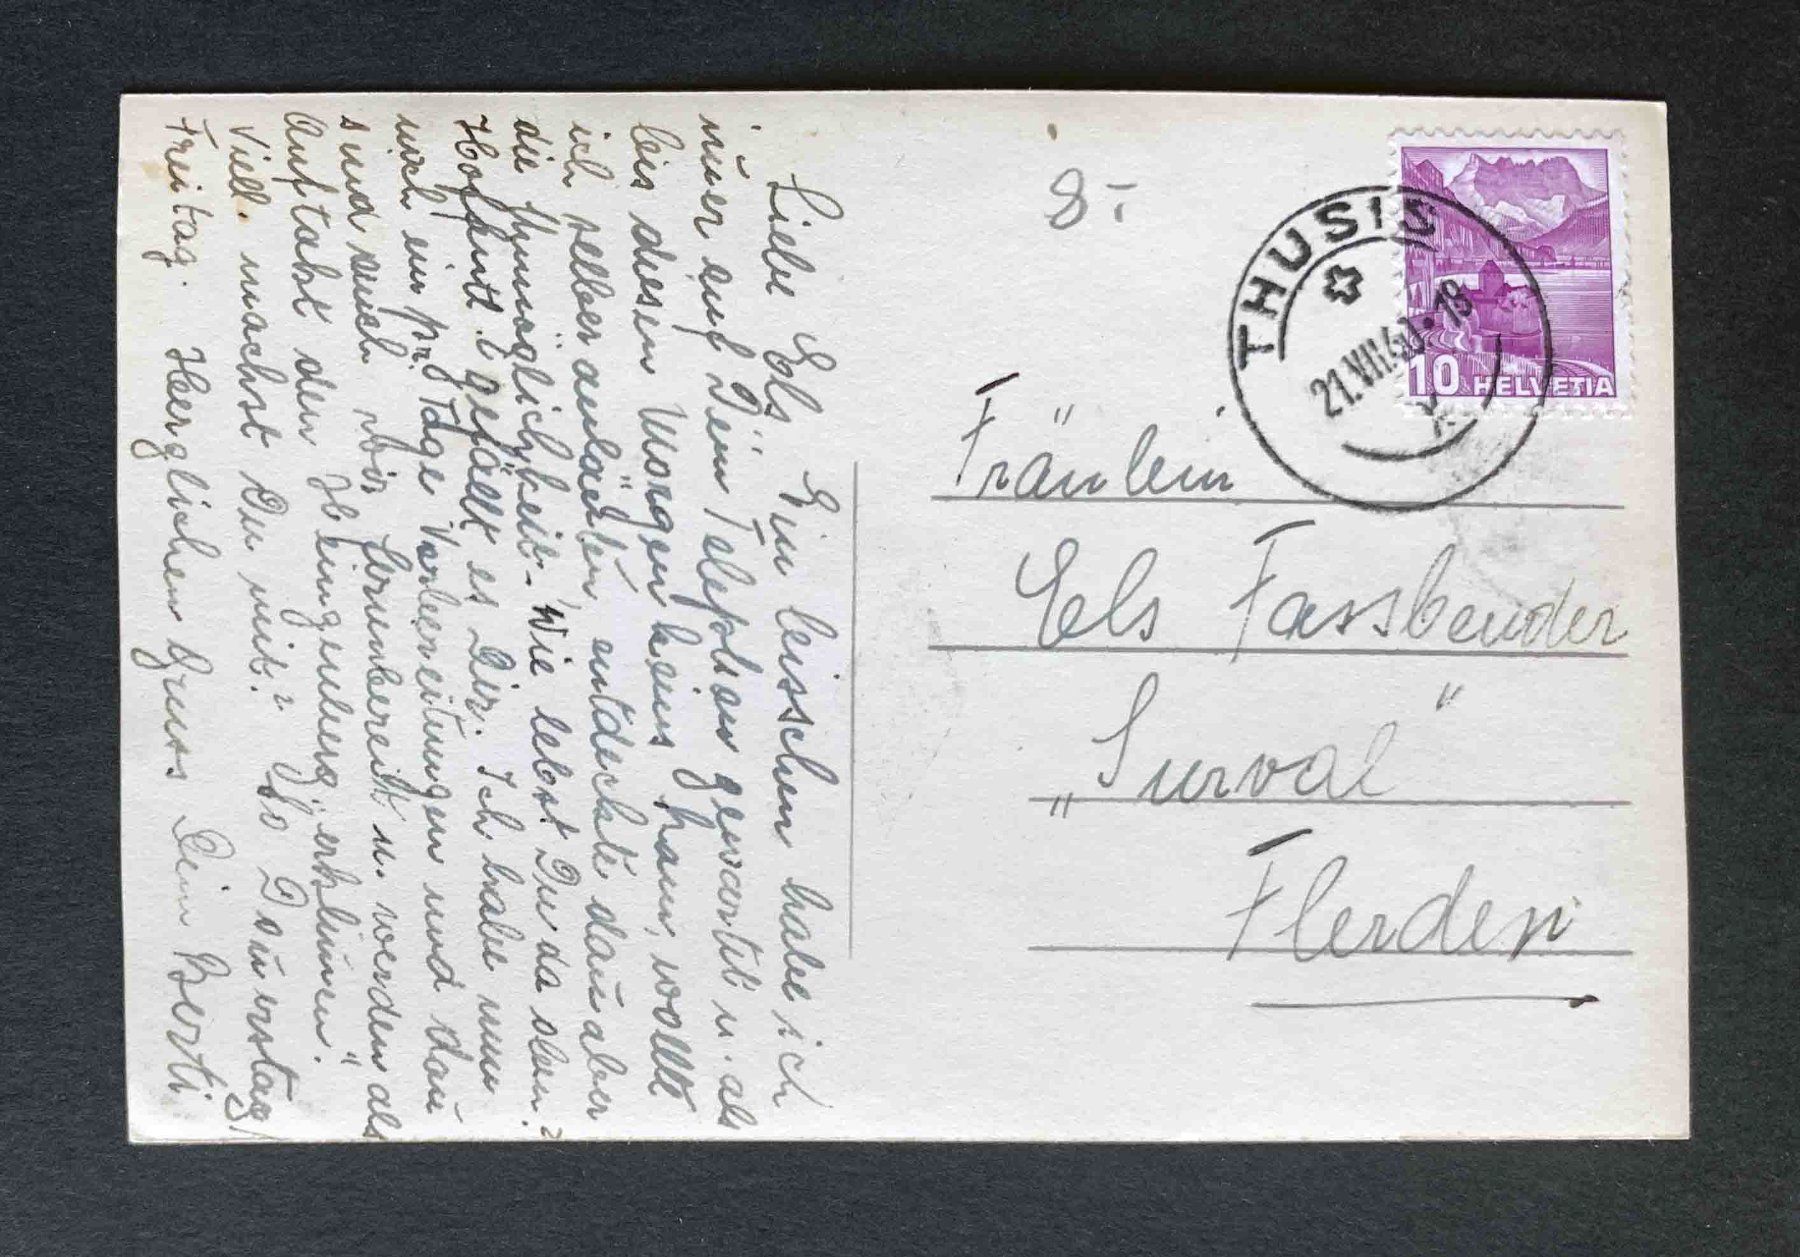 Liebe Els! Ein bisschen habe ich
nun auf Dein Telephon gewartet u. als
bis diesen Morgen keins kam, wollte
ich selber anläuten, entdeckte dann aber
die Unmöglichkeit. Wie lebst Du da oben?
Hoffentl. gefällt es Dir. Ich habe nun
noch ein pr. Tage Vorbereitungen und dann
sind auch wir b. u. werden als
Auftakt den Heinzenberg „erklimmen".
Viell. machst Du mit? So Donnerstag/
Freitag. Herzlichen Gruss Dein Berti
8.-
THUSIS
21.VII.40.-18
10 HELVETIA
Fräulein
Els Fassbender
„Surval"
Flerden